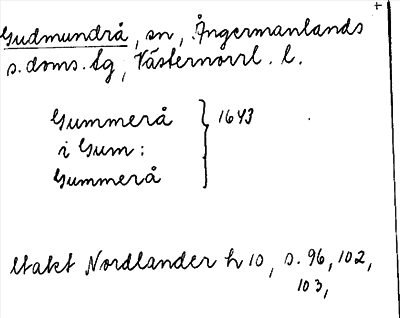 Gudmundrå, sn, Ångermanlands
s. doms. tg, Västernorrl. l.
Gummerå } 1643
i Gum:
Gummerå
Utakt Nordlander h 10, s. 96, 102,
103,